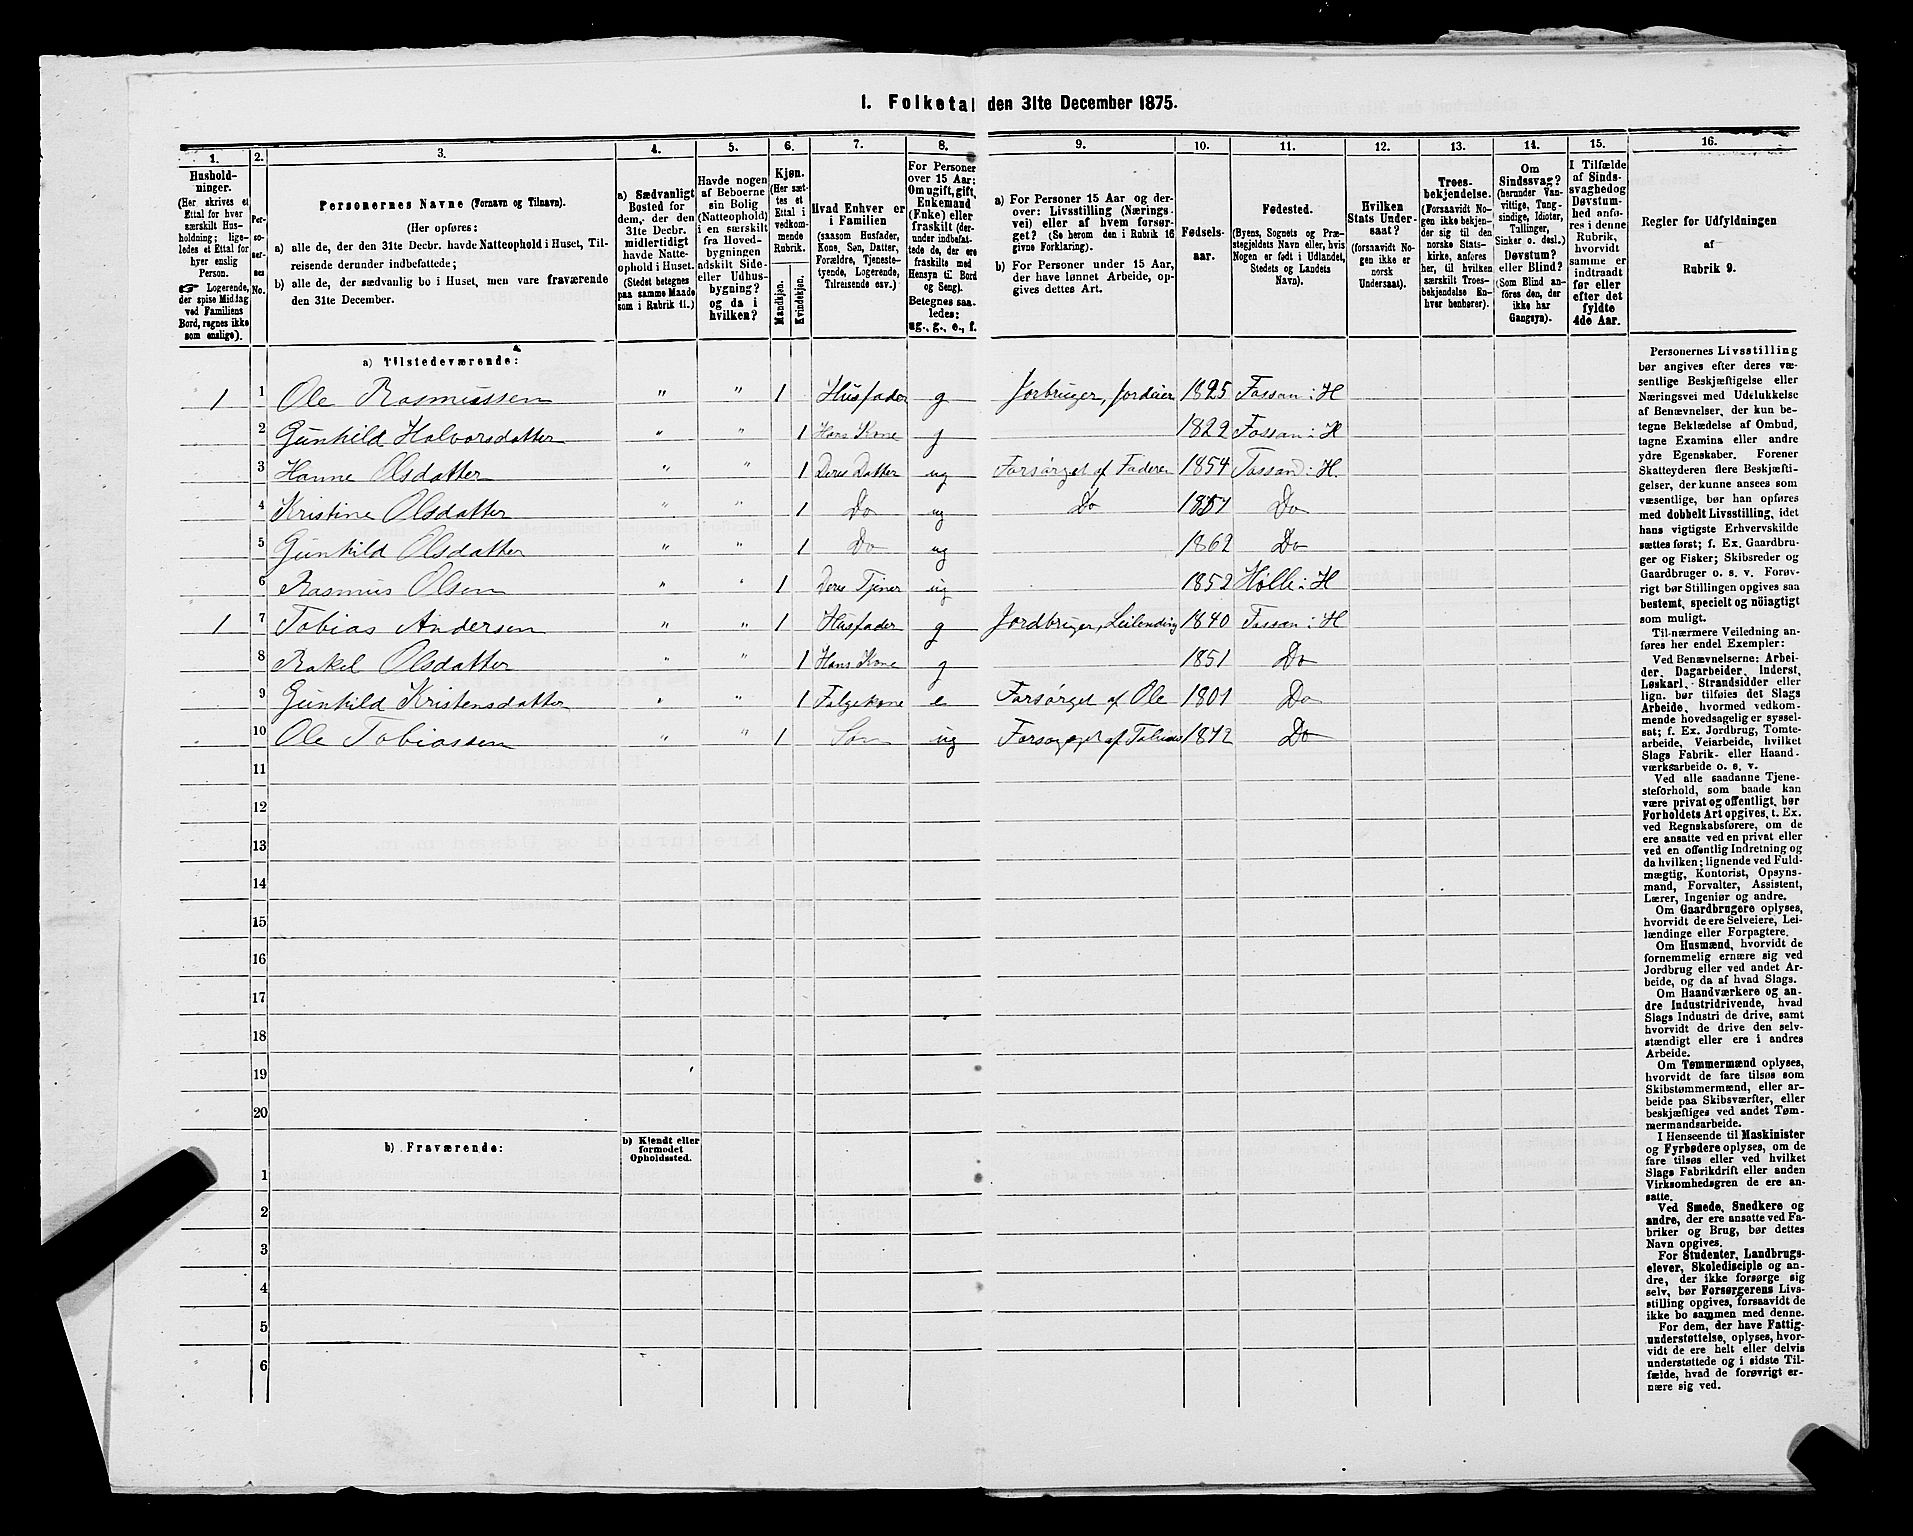 1. Folketal den 31te December 1875.
1.
Husholdninger.
(Her skrives et Ettal for hver særskilt Husholdning; ligeledes et Ettal for hver enslig Person.
☞ Logerende, der spise Middag ved Familiens Bord, regnes ikke som enslige).
2.
Personernes No.
3.
Personernes Navne (Fornavn og Tilnavn).
(Her opføres:
a) alle de, der den 31te Decbr. havde Natteophold i Huset, Tilreisende derunder indbefattede;
b) alle de, der sædvanlig bo i Huset, men vare fraværende den 31te December.
4.
a) Sædvanligt Bosted for dem, der den 31te Decbr. midlertidigt havde Natteophold i Huset. (Stedet betegnes paa samme Maade som i Rubrik 11.)
5.
Havde nogen af Beboerne sin Bolig (Natteophold) i en særskilt fra Hovedbygningen adskilt Side- eller Udhusbygning? og da i hvilken?
6.
Kjøn.
(Her sættes et Ettal i vedkommende Rubrik.
Mandkjøn.
Kvindekjøn.
7.
Hvad Enhver er i Familien
(saasom Husfader, Kone, Søn, Datter, Forældre, Tjenestetyende, Logerende, Tilreisende osv.)
8.
For Personer over 15 Aar: Om ugift, gift, Enkemand (Enke) eller fraskilt (derunder indbefattede de, der ere fraskilte med Hensyn til Bord og Seng). Betegnes saaledes: ug., g., e., f.
9.
a) For Personer 15 Aar og derover: Livsstilling (Næringsvei) eller af hvem forsørget? (Se herom den i Rubrik 16 givne Forklaring).
b) For Personer under 15 Aar, der have lønnet Arbeide, opgives dettes Art.
10.
Fødselsaar.
11.
Fødested.
(Byens, Sognets og Præstegjeldets Navn eller, hvis Nogen er født i Udlandet, Stedets og Landets Navn).
12.
Hvilken Stats Undersaat?
(forsaavidt Nogen ikke er norsk Undersaat).
13.
Troesbekjendelse.
(Forsaavidt Nogen ikke bekjender sig til den norske Statskirke, anføres her, til hvilken særskilt Troesbekjendelse Enhver henhører).
14.
Om Sindssvag? (herunder Vanvittige, Tungsindige, Idioter, Tullinger, Sinker o. desl.) Døvstum? eller Blind? (Som Blind anføres den, der ikke har Gangsyn).
15.
I Tilfælde af Sindssvaghed og Døvstumhed anføres i denne Rubrik, hvorvidt samme er indtraadt før eller efter det fyldte 4de Aar.
16.
Regler for Udfyldningen
af
Rubrik 9.
a) Tilstedeværende:
1 1 Ole Rasmussen " " 1 Husfader g Jorbruger, Jordeier 1825 Fossan i H
2 Gunhild Halvorsdatter " " 1 Hans Kone g 1822 Fossan i H
3 Hanne Olsdatter " " 1 Deres Datter ug Forsørget af Faderen 1854 Fossan i H.
4 Kristine Olsdatter " " 1 Do ug Do 1857 Do
5 Gunhild Olsdatter " " 1 Do ug 1862 Do
6 Rasmus Olsen " " 1 Deres Tjener ug 1852 Hølle i H
1 7 Tobias Andersen " " 1 Husfader g Jordbruger, Leilending 1840 Fossan i H
8 Rakel Olsdatter " " 1 Hans Kone g 1851 Do
9 Gunhild Kristensdatter " " 1 Folgekone e Forsørget af Ole 1801 Do
10 Ole Tobiassen " " 1 Søn ug Forsørget af Tobias 1872 Do
11
12
13
14
15
16
17
18
19
20
b) Fraværende:
b) Kjendt eller formodet Opholdssted.
1
2
3
4
5
6
Personernes Livsstilling
bør angives efter deres væsentlige Beskjæftigelse eller
Næringsvei med Udelukkelse
af Benævnelser, der kun betegne Beklædelse af Ombud,
tagne Examina eller andre
ydre Egenskaber. Forener
Skatteyderen flere Beskjæftigelser, der kunne ansees som
væsentlige, bør han opføres
med dobbelt Livsstilling, idet
hans vigtigste Erhvervskilde
sættes først; f. Ex. Gaardbruger og Fisker; Skibsreder og
Gaardbruger o. s. v. Forøvrigt bør Stillingen opgives saa
bestemt, specielt og nöiagtigt
som muligt.
Til nærmere Veiledning anføres her Exempler:
Ved Benævnelserne: Arbeider, Dagarbeider, Inderst,
Løskarl, Strandsidder eller
lign. bør tilføies det Slags
Arbeide, hvormed vedkommende hovedsagelig er sysselsat; f. Ex. Jordbrug, Tomtearbeide, Veiarbeide, hvilket
Slags Fabrik- eller Haandværksarbeide o. s. v.
Ved alle saadanne Tjenesteforhold, som baade kan
være privat og offentligt, bør
Forholdets Art opgives, t. Ex.
ved Regnskabsførere, om de
ere ansatte ved en privat eller
ved en offentlig Indretning og
da hvilken; lignende ved Fuldmægtig, Kontorist, Opsynsmand, Forvalter, Assistent,
Lærer, Ingeniør og andre.
Om Gaardbrugere oplyses,
hvorvidt de ere Selveiere, Leilændinge eller Forpagtere.
Om Husmænd, hvorvidt de
fornemmelig ernære sig ved
Jordbrug eller ved andet Arbeide, og da af hvad Slags.
Om Haandværkere og andre Industridrivende, hvad
Slags Industri de drive, samt
hvorvidt de drive den selvstændigt eller ere i andres
Arbeide.
Om Tømmermænd oplyses,
hvorvidt de fare tilsøs som
Skibstømmermænd, eller arbeide paa Skibsværfter, eller
beskjæftiges ved andet Tømmermandsarbeide.
I Henseende til Maskinister
og Fyrbødere oplyses, om de
fare tilsøs eller ved hvilket
Slags Fabrikdrift eller anden
Virksomhedsgren de ere ansatte.
Ved Smede, Snedkere og
andre, der ere ansatte ved Fabriker og Brug, bør dettes
Navn opgives.
For Studenter, Landbrugselever, Skoledisciple og andre, der ikke forsørge sig
selv, bør Forsørgerens Livsstilling opgives, forsaavidt de
ikke bo sammen med denne.
For dem, der have Fattigunderstøttelse, oplyses, hvorvidt de ere helt eller delvis
understøttede og i sidste Tilfælde, hvad de forøvrigt ernære sig ved.